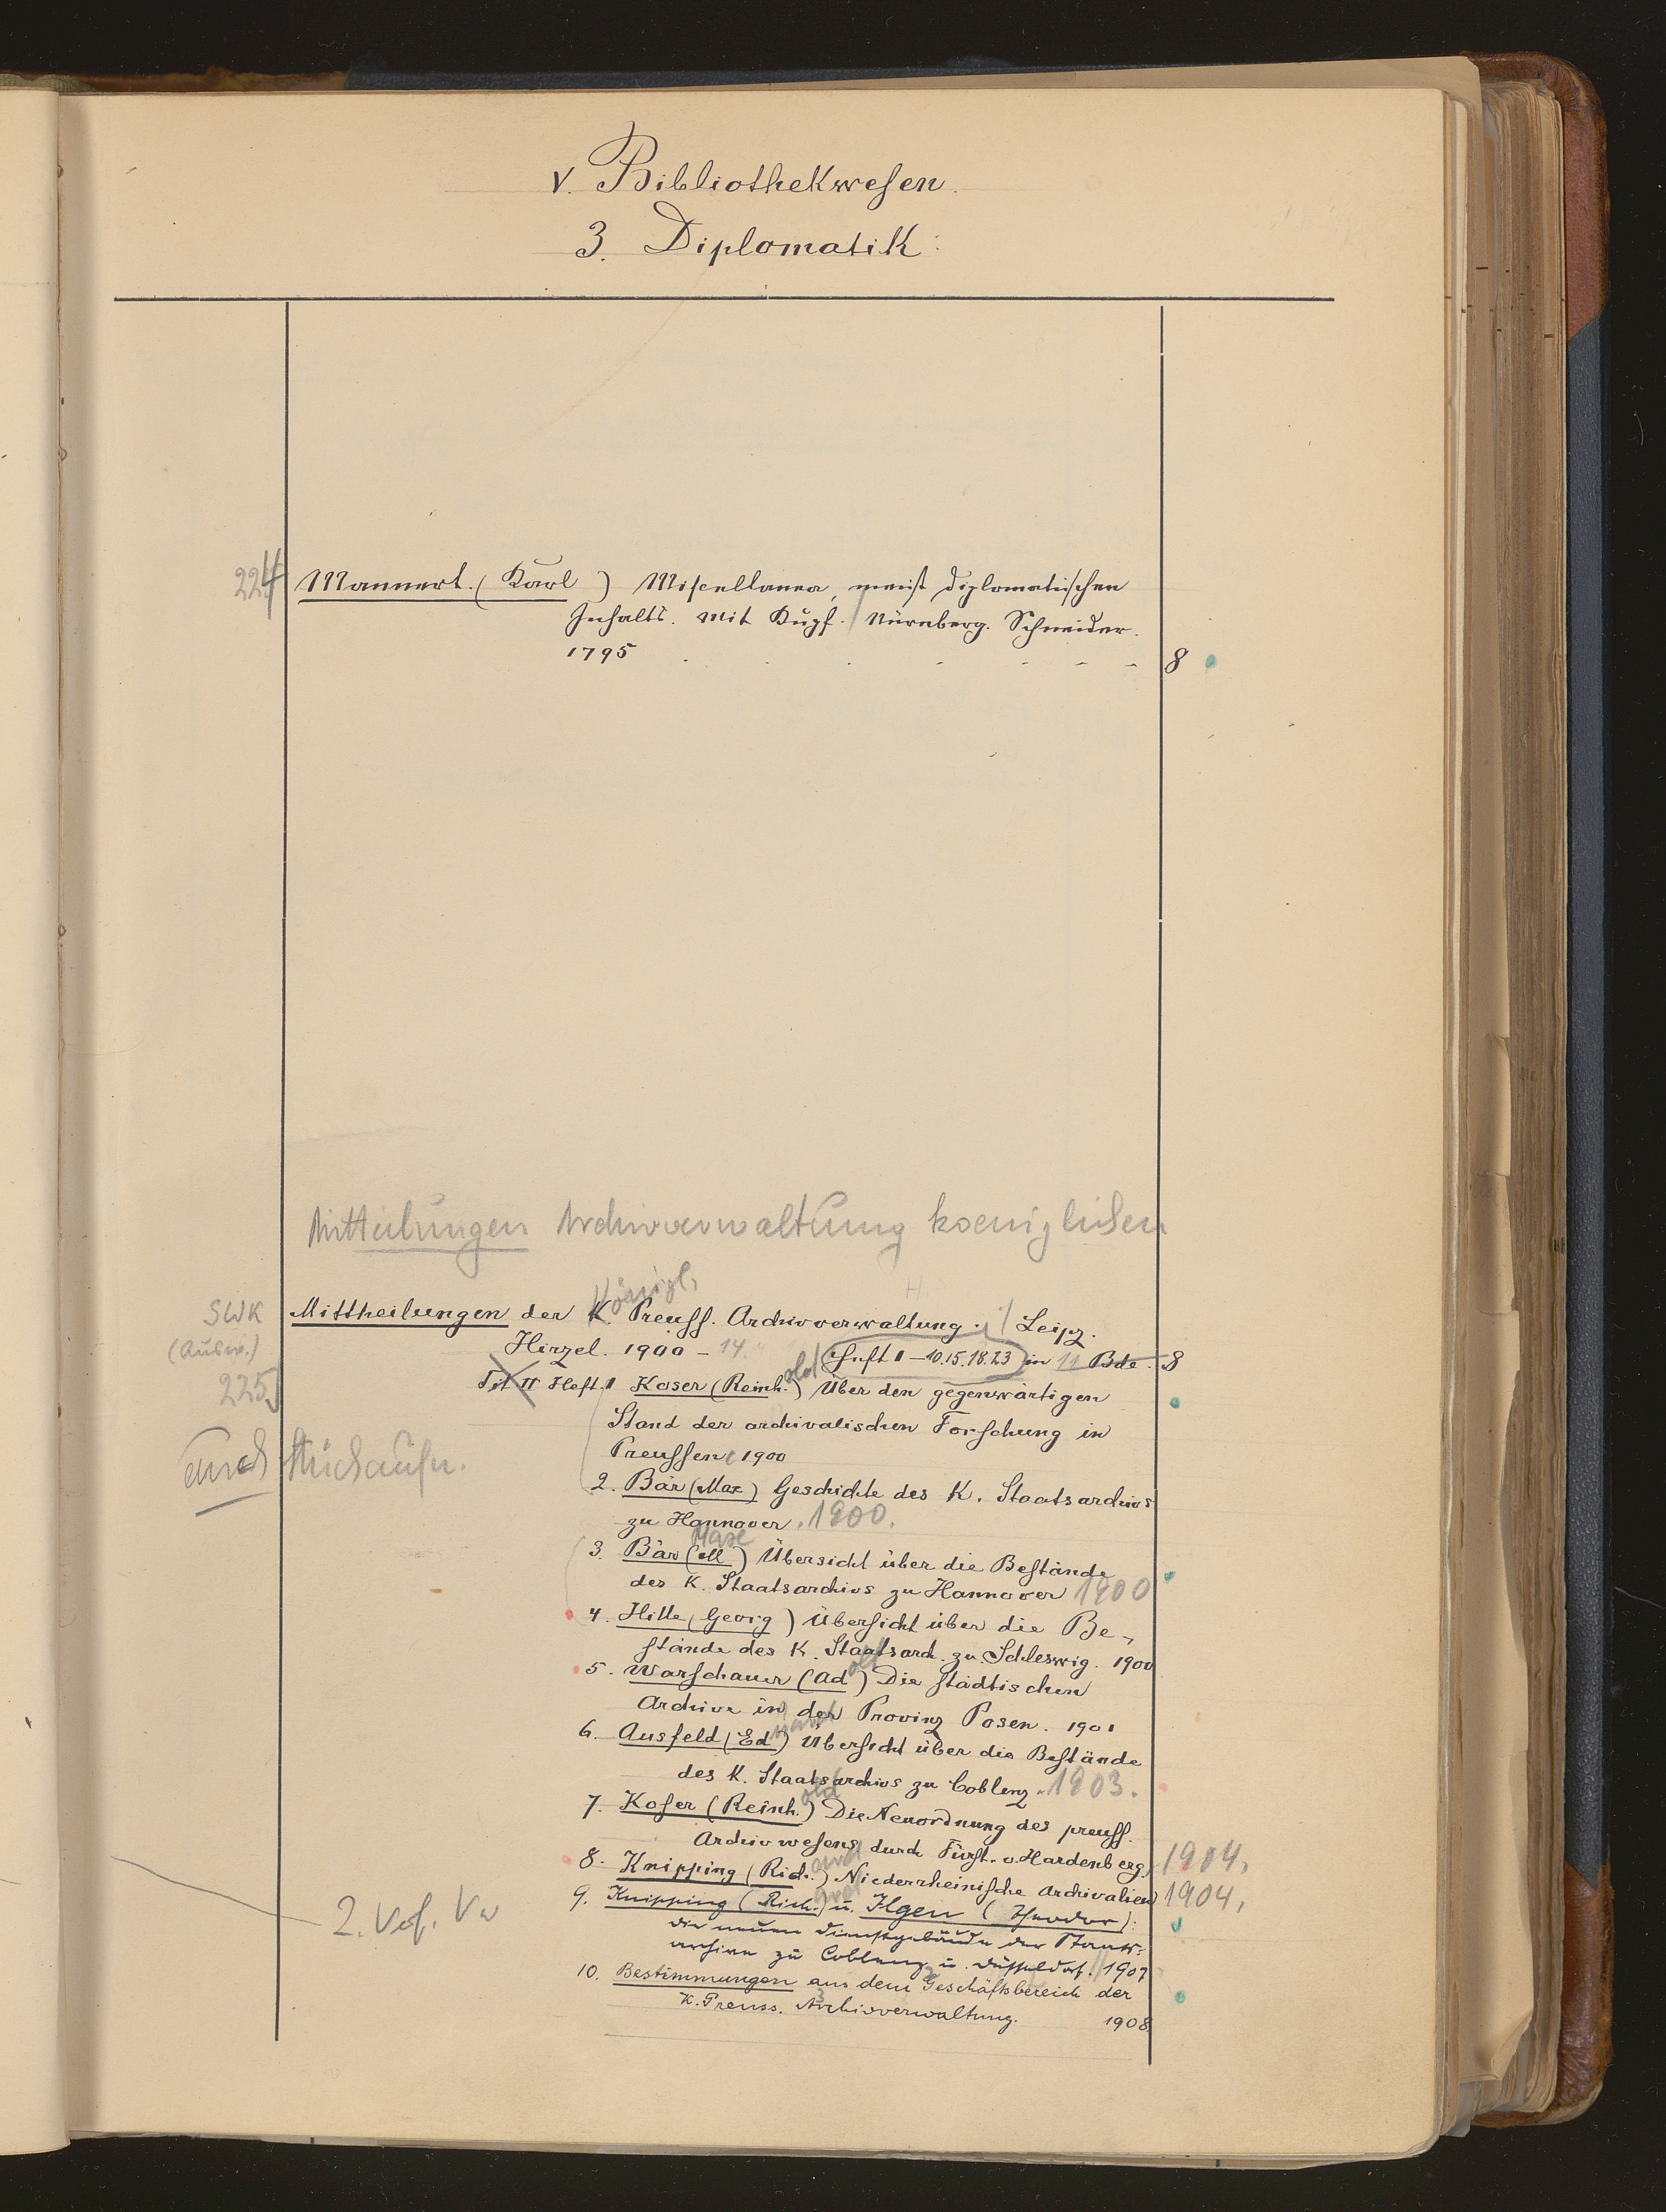 V. Bibliothekwesen.
3. Diplomatik.
224 Mannert. (Karl) Miscellanea, meist diplomatischen
Inhalts. Mit Kupf. Nürnberg. Schneider.
1795 . . . . . . . 8
Mitteilungen Archivverwaltung koeniglichen
Königl.
SWK Mittheilungen der K. Preuss. Archivverwaltung. Leipz.
(Ausw.) Hirzel. 1900 - 14. Heft 1 - 10.15.18.23 in 11 Bde. 8
225 Tit II Heft. 1 Koser (Reinhold) Über den gegenwärtigen
Stand der archivalischen Forschung in
auch Stückaufn. Preussen. 1900
2. Bär (Max) Geschichte des K. Staatsarchivs
zu Hannover. 1900.
3. Bär (Max) Übersicht über die Bestände
des K. Staatsarchivs zu Hannover 1900
4. Hille (Georg) Übersicht über die Be-
stände des K. Staatsarch. zu Schleswig. 1900
5. Warschauer (Adolf) Die städtischen
Archive in der Provinz Posen. 1901
6. Ausfeld (Eduard) Übersicht über die Bestände
des K. Staatsarchivs zu Coblenz. 1903.
7. Koser (Reinhold) Die Neuordnung des preuss.
Archivwesens durch Fürst. v. Hardenberg. 1904.
8. Knipping (Richard) Niederrheinische Archivalien 1904.
2. Verf. Vw 9. Knipping (Rich.) u. Ilgen (Theodor):
Die neuen Dienstgebäude der Staats-
archive zu Coblenz u. Düsseldorf. 1907
10. Bestimmungen aus dem Geschäftsbereich der
K. Preuss. Archivverwaltung. 1908